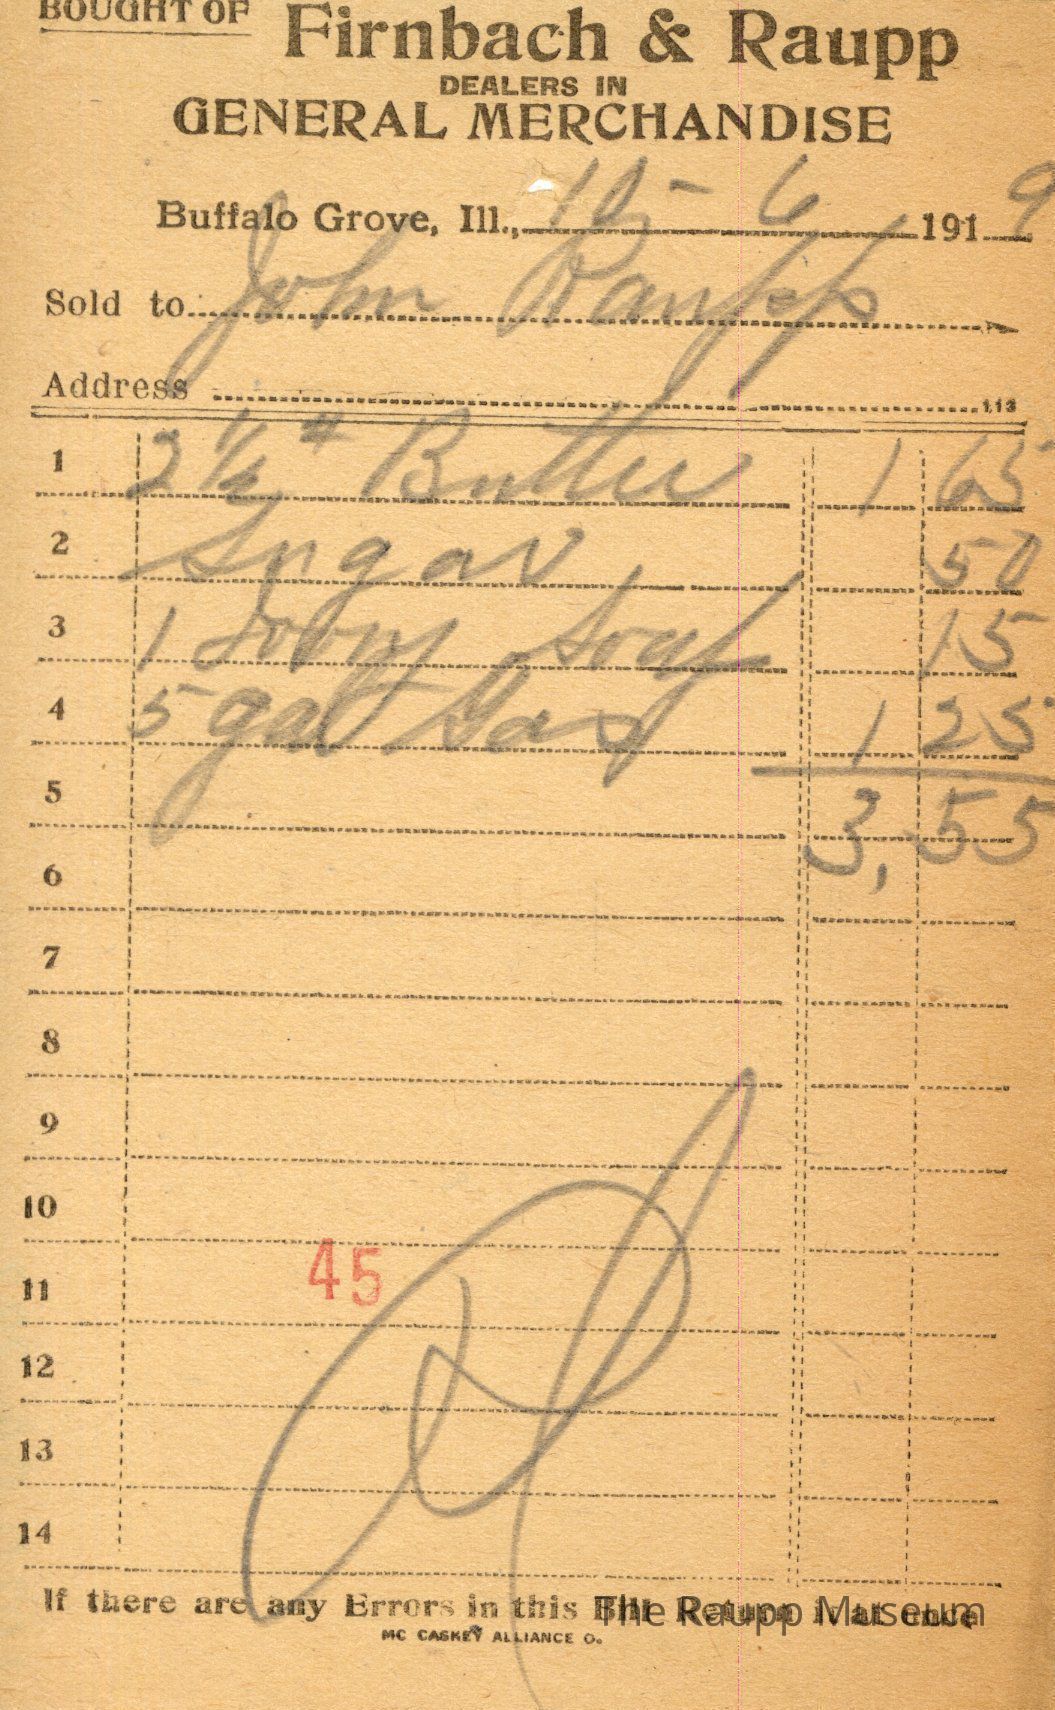 BOUGHT OF
Firnbach & Raupp
DEALERS IN
GENERAL MERCHANDISE
Buffalo Grove, Ill., 10-6 1919
Sold to John Raupp
Address
113
1 2 1/2 # Butter 1 65
2 Sugar 50
3 1 Ivory Soap 15
4 5 gal Gas 1 25
5 3,55
6
7
8
9
10
45
11
12
13
14
If there are any Errors in this Bill Return it at once
The Raupp Museum
MC CASKEY ALLIANCE O.